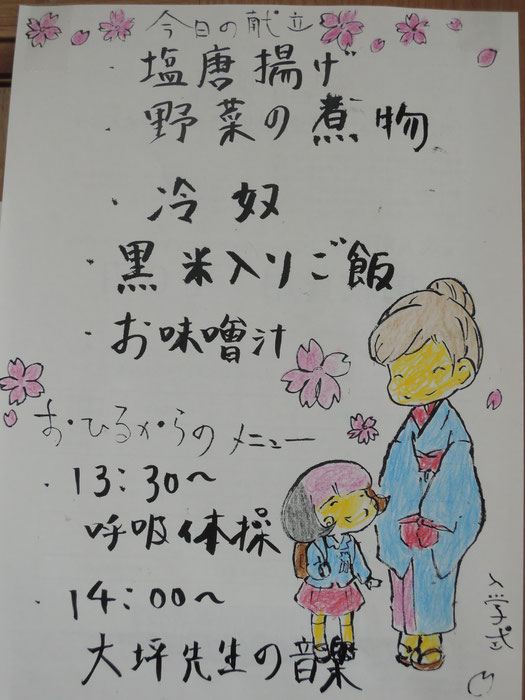 今日の献立
・塩唐揚げ
・野菜の煮物
・冷奴
・黒米入りご飯
・お味噌汁
おひるからのメニュー
・13:30〜
呼吸体操
・14:00〜
大坪先生の音楽
入学式